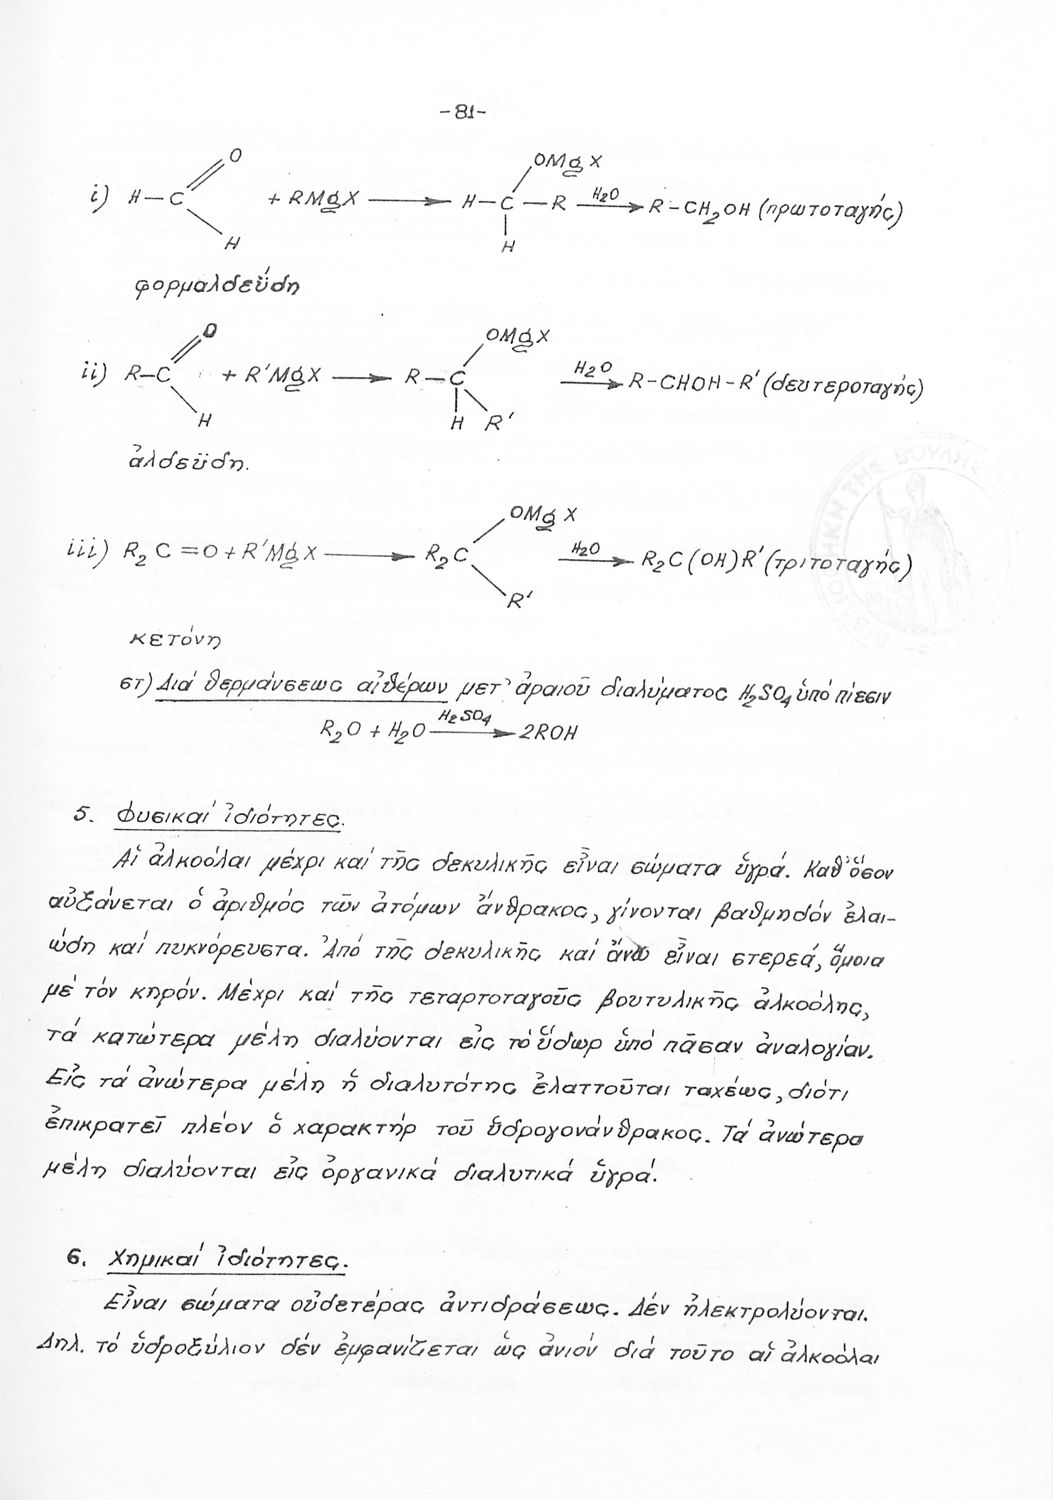 -81-
OMgX
i) H-C + RMgX → H-C-R H2O → R-CH2OH (πρωτοταγής)
O
H
H
φορμαλδεΰδη
O
OMgX
ii) R-C + R'MgX → R-C H2O → R-CHOH-R' (δευτεροταγής)
H
H R'
ἀλδεΰδη.
OMgX
iii) R2C=O+R'MgX → R2C H2O → R2C(OH)R' (τριτοταγής)
R'
κετόνη
στ) Διά θερμάνσεως αἰθέρων μετ' ἀραιοῦ διαλύματος H2SO4 ὑπό πίεσιν
R2O + H2O H2SO4 → 2ROH
5. Φυσικαί ἰδιότητες.
Αἱ ἀλκοόλαι μέχρι καί τῆς δεκυλικῆς εἶναι σώματα ὑγρά. Καθ' ὅσον
αὐξάνεται ὁ ἀριθμός τῶν ἀτόμων ἄνθρακος, γίνονται βαθμηδόν ἐλαι-
ώδη καί πυκνόρευστα. Ἀπό τῆς δεκυλικῆς καί ἄνω εἶναι στερεά, ὅμοια
μέ τόν κηρόν. Μέχρι καί τῆς τεταρτοταγοῦς βουτυλικῆς ἀλκοόλης,
τά κατώτερα μέλη διαλύονται εἰς τό ὕδωρ ὑπό πᾶσαν ἀναλογίαν.
Εἰς τά ἀνώτερα μέλη ἡ διαλυτότης ἐλαττοῦται ταχέως, διότι
ἐπικρατεῖ πλέον ὁ χαρακτήρ τοῦ ὑδρογονάνθρακος. Τά ἀνώτερα
μέλη διαλύονται εἰς ὀργανικά διαλυτικά ὑγρά.
6. Χημικαί ἰδιότητες.
Εἶναι σώματα οὐδετέρας ἀντιδράσεως. Δέν ἠλεκτρολύονται.
Δηλ. τό ὑδροξύλιον δέν ἐμφανίζεται ὡς ἀνιόν διά τοῦτο αἱ ἀλκοόλαι